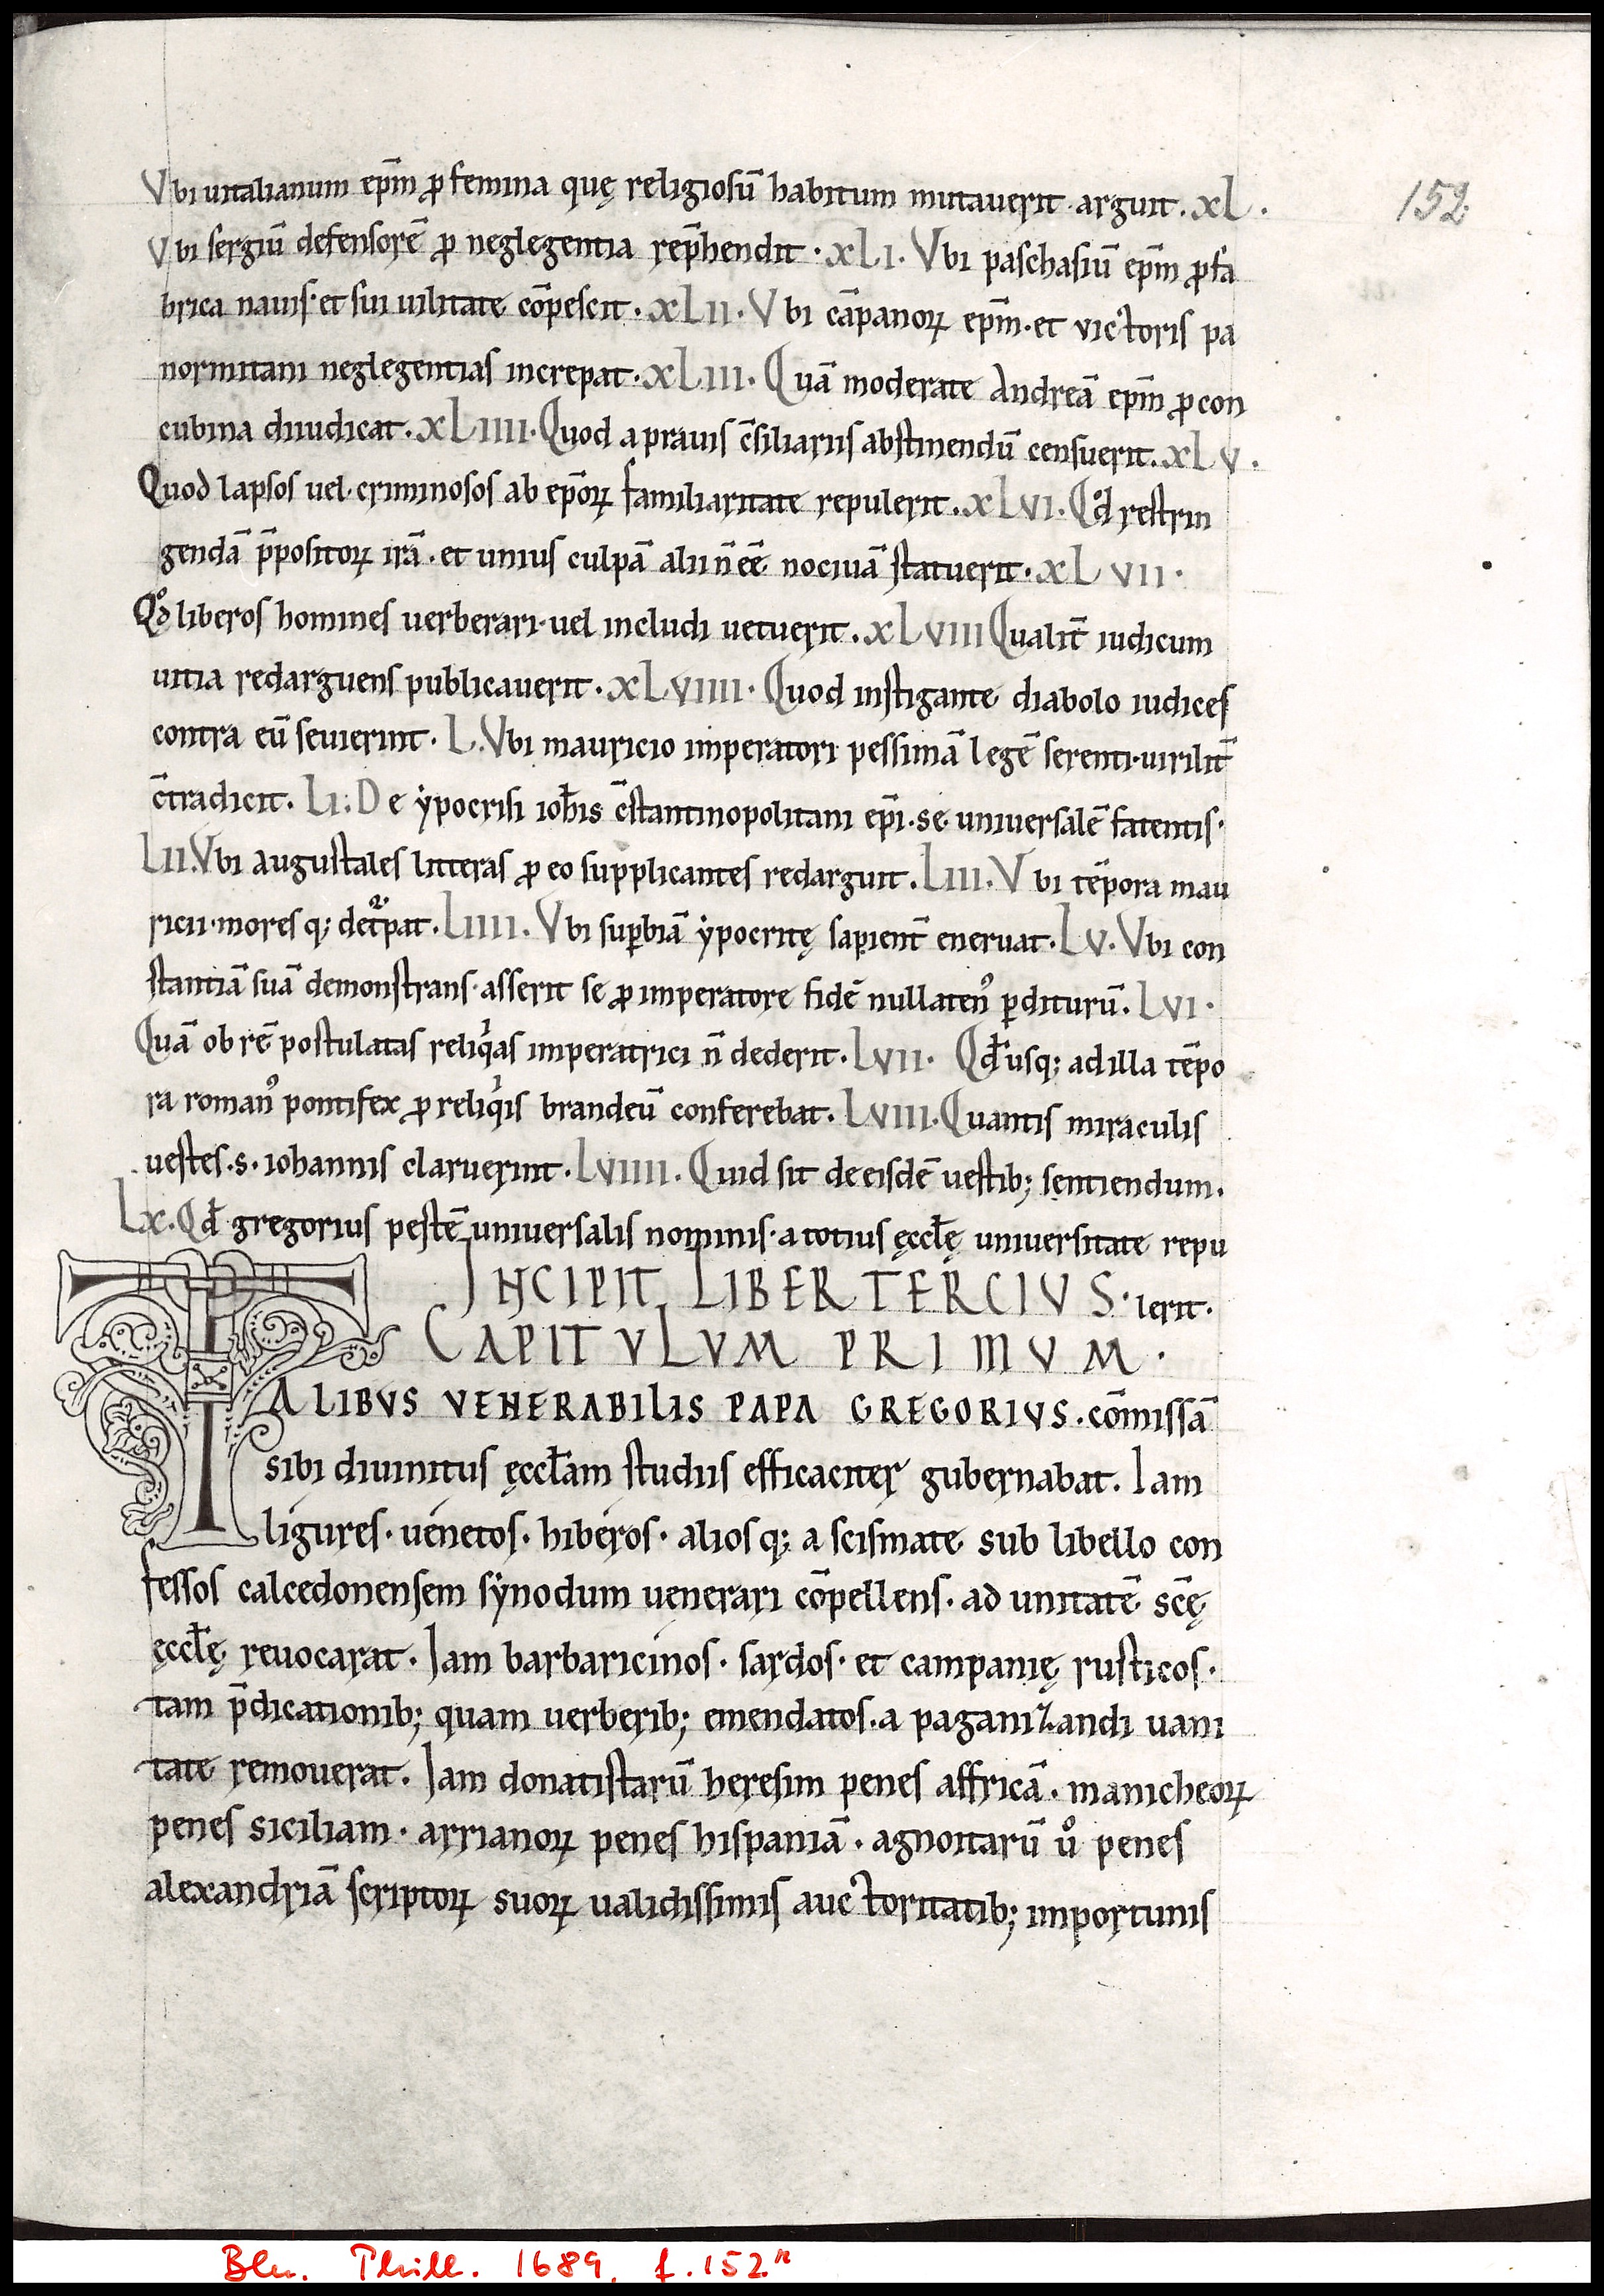 Vbi uitalianum ep̄m ꝓ femina quę religiosū habitum mutauerit arguit. XL.
152.
Vbi sergiū defensorē ꝓ neglegentia rep̄hendit. XLI. Vbi paschasiū ep̄m ꝓ fa
brica nauis· et sui uilitate cōpescit. XLII. Vbi cāpanoꝝ ep̄m· et victoris pa
normitani neglegentias increpat. XLIII. Quā moderate Andreā ep̄m ꝓ con
cubina diiudicat. XLIIII. Quod a prauis c̄siliariis abstinendū censuerit. XLV.
Quod lapsos uel criminosos ab ep̄oꝝ familiaritate repulerit. XLVI. Qd̊ restrin
gendā p̄positoꝝ irā· et unius culpā alii n̄ eē nociuā statuerit. XLVII.
Qd̊ liberos homines uerberari· uel includi uetuerit. XLVIII Qualit̄ iudicum
uitia redarguens publicauerit. XLVIIII. Quod instigante diabolo iudices
contra eū seuierint. L. Vbi mauricio imperatori pessimā legē serenti· uirilit̄
c̄tradicit. LI. De ẏpocrisi ioh̄is c̄stantinopolitani ep̄i· se uniuersalē fatentis·
LII. Vbi augustales litteras ꝓ eo supplicantes redarguit. LIII. Vbi tēpora mau
ricii· mores q; det̄pat. LIIII. Vbi suꝑbiā ẏpocritę sapient̄ eneruat. LV. Vbi con
stantiā suā demonstrans· asserit se ꝓ imperatore fidē nullaten᾽ ꝑditurū. LVI.
Quā ob rē postulatas reliqͥas imperatrici n̄ dederit. LVII. Qd̄ usq; ad illa tēpo
ra roman᾽ pontifex ꝓ reliqͥis brandeū conferebat. LVIII. Quantis miraculis
uestes .s. iohannis claruerint. LVIIII. Quid sit de eisdē uestib; sentiendum.
LX. Qd̄ gregorius pestē uniuersalis nominis· a totius ęccl̄ę uniuersitate repu
INCIPIT LIBER TERCIVS. lerit.
CAPITVLVM PRIMVM.
TALIBVS VENERABILIS PAPA GREGORIVS. cōmissā
sibi diuinitus ęccl̄am studiis efficaciter gubernabat. Iam
ligures· uenetos· hiberos· alios q; a scismate sub libello con
fessos calcedonensem sẏnodum uenerari cōpellens· ad unitatē sc̄ę
ęccl̄ę reuocarat. Iam barbaricinos· sardos· et campanię rusticos·
tam p̄dicationib; quam uerberib; emendatos· a paganizandi uani
tate remouerat. Iam donatistarū heresim penes affricā· manicheoꝝ
penes siciliam· arrianoꝝ penes hispaniā· agnoitarū ů penes
alexandriā scriptoꝝ suoꝝ ualidissimis auctoritatib; importunis
Bln. Phill. 1689, f. 152ʳ